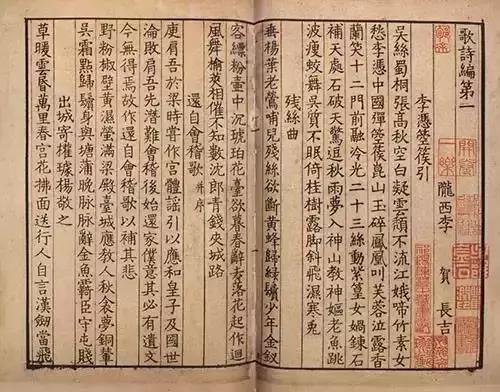 歌詩編第一
隴西李賀長吉
李憑箜篌引
吳絲蜀桐張高秋空白凝雲頹不流江娥啼竹素女
愁李憑中國彈箜篌崑山玉碎鳳凰叫芙蓉泣露香
蘭笑十二門前融冷光二十三絲動紫皇女媧鍊石
補天處石破天驚逗秋雨夢入神山教神嫗老魚跳
波瘦蛟舞吳質不眠倚桂樹露脚斜飛濕寒兔
残絲曲
垂楊葉老鶯哺兒殘絲欲斷黃蜂歸綠鬢少年金釵
客縹粉壺中沉琥珀花臺欲暮春辭去落花起作迴
風舞榆莢相催不知數沈郎青錢夾城路
還自會稽歌 并序
庾肩吾於梁時嘗作宮體謠引以應和皇子及國世
淪敗肩吾先潛難會稽後始還家僕意其必有遺文
今無得焉故作還自會稽歌以補其悲
野粉椒壁黃濕螢滿梁殿臺城應教人秋衾夢銅輦
吳霜點歸鬢身與塘蒲晚脉脉辭金魚羈臣守屯賤
出城寄權璩楊敬之
草暖雲昏萬里春宮花拂面送行人自言漢劍當飛